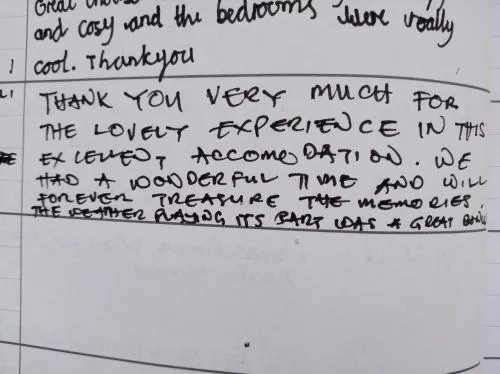 Great
and cosy and the bedrooms were really
cool. Thankyou
THANK YOU VERY MUCH FOR
THE LOVELY EXPERIENCE IN THIS
EXCELLENT ACCOMODATION. WE
HAD A WONDERFUL TIME AND WILL
FOREVER TREASURE THE MEMORIES.
THE WEATHER PLAYING ITS PART WAS A GREAT BONUS